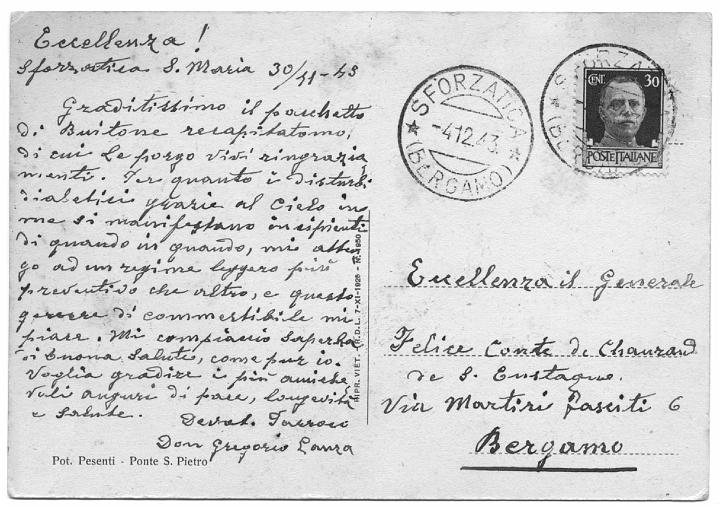 Eccellenza!
Sforzatica S. Maria 30/11-43
Graditissimo il pacchetto
di Buitone recapitatomi,
di cui Le porgo vivi ringrazia
menti. Per quanto i disturbi
diabetici grazie al Cielo in
me si manifestano insipienti
di quando in quando, mi atten
go ad un regime leggero più
preventivo che altro, e questo
genere di commestibile mi
piace. Mi compiaccio saperla
di buona salute, come pur io.
Voglia gradire i più amiche
voli auguri di pace, longevità
e salute.
Devot. Parroco
Don Gregorio Lanza
Pot. Pesenti - Ponte S. Pietro
RIPR. VIET. (R.D.L. 7-XI-1925 - N. 1950)
SFORZATICA
-4.12.43.
(BERGAMO)
SFORZATICA
(BERGAMO)
CENT. 30
POSTE ITALIANE
Eccellenza il Generale
Felice Conte de Chaurand
de S. Eustaque.
Via Martiri Fascisti 6
Bergamo